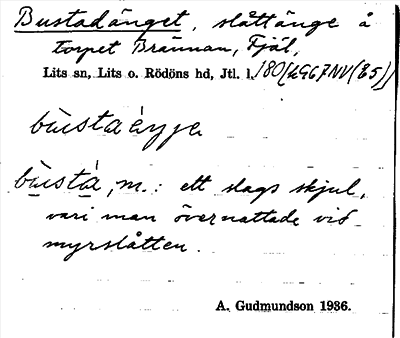 Bustadänget, slåttänge å
torpet Brännan, Fjäl,
Lits sn, Lits o. Rödöns hd, Jtl. l.
bùsta
bùstá, m.: ett slags skjul,
vari man övernattade vid
myrslåtten.
A. Gudmundson 1936.